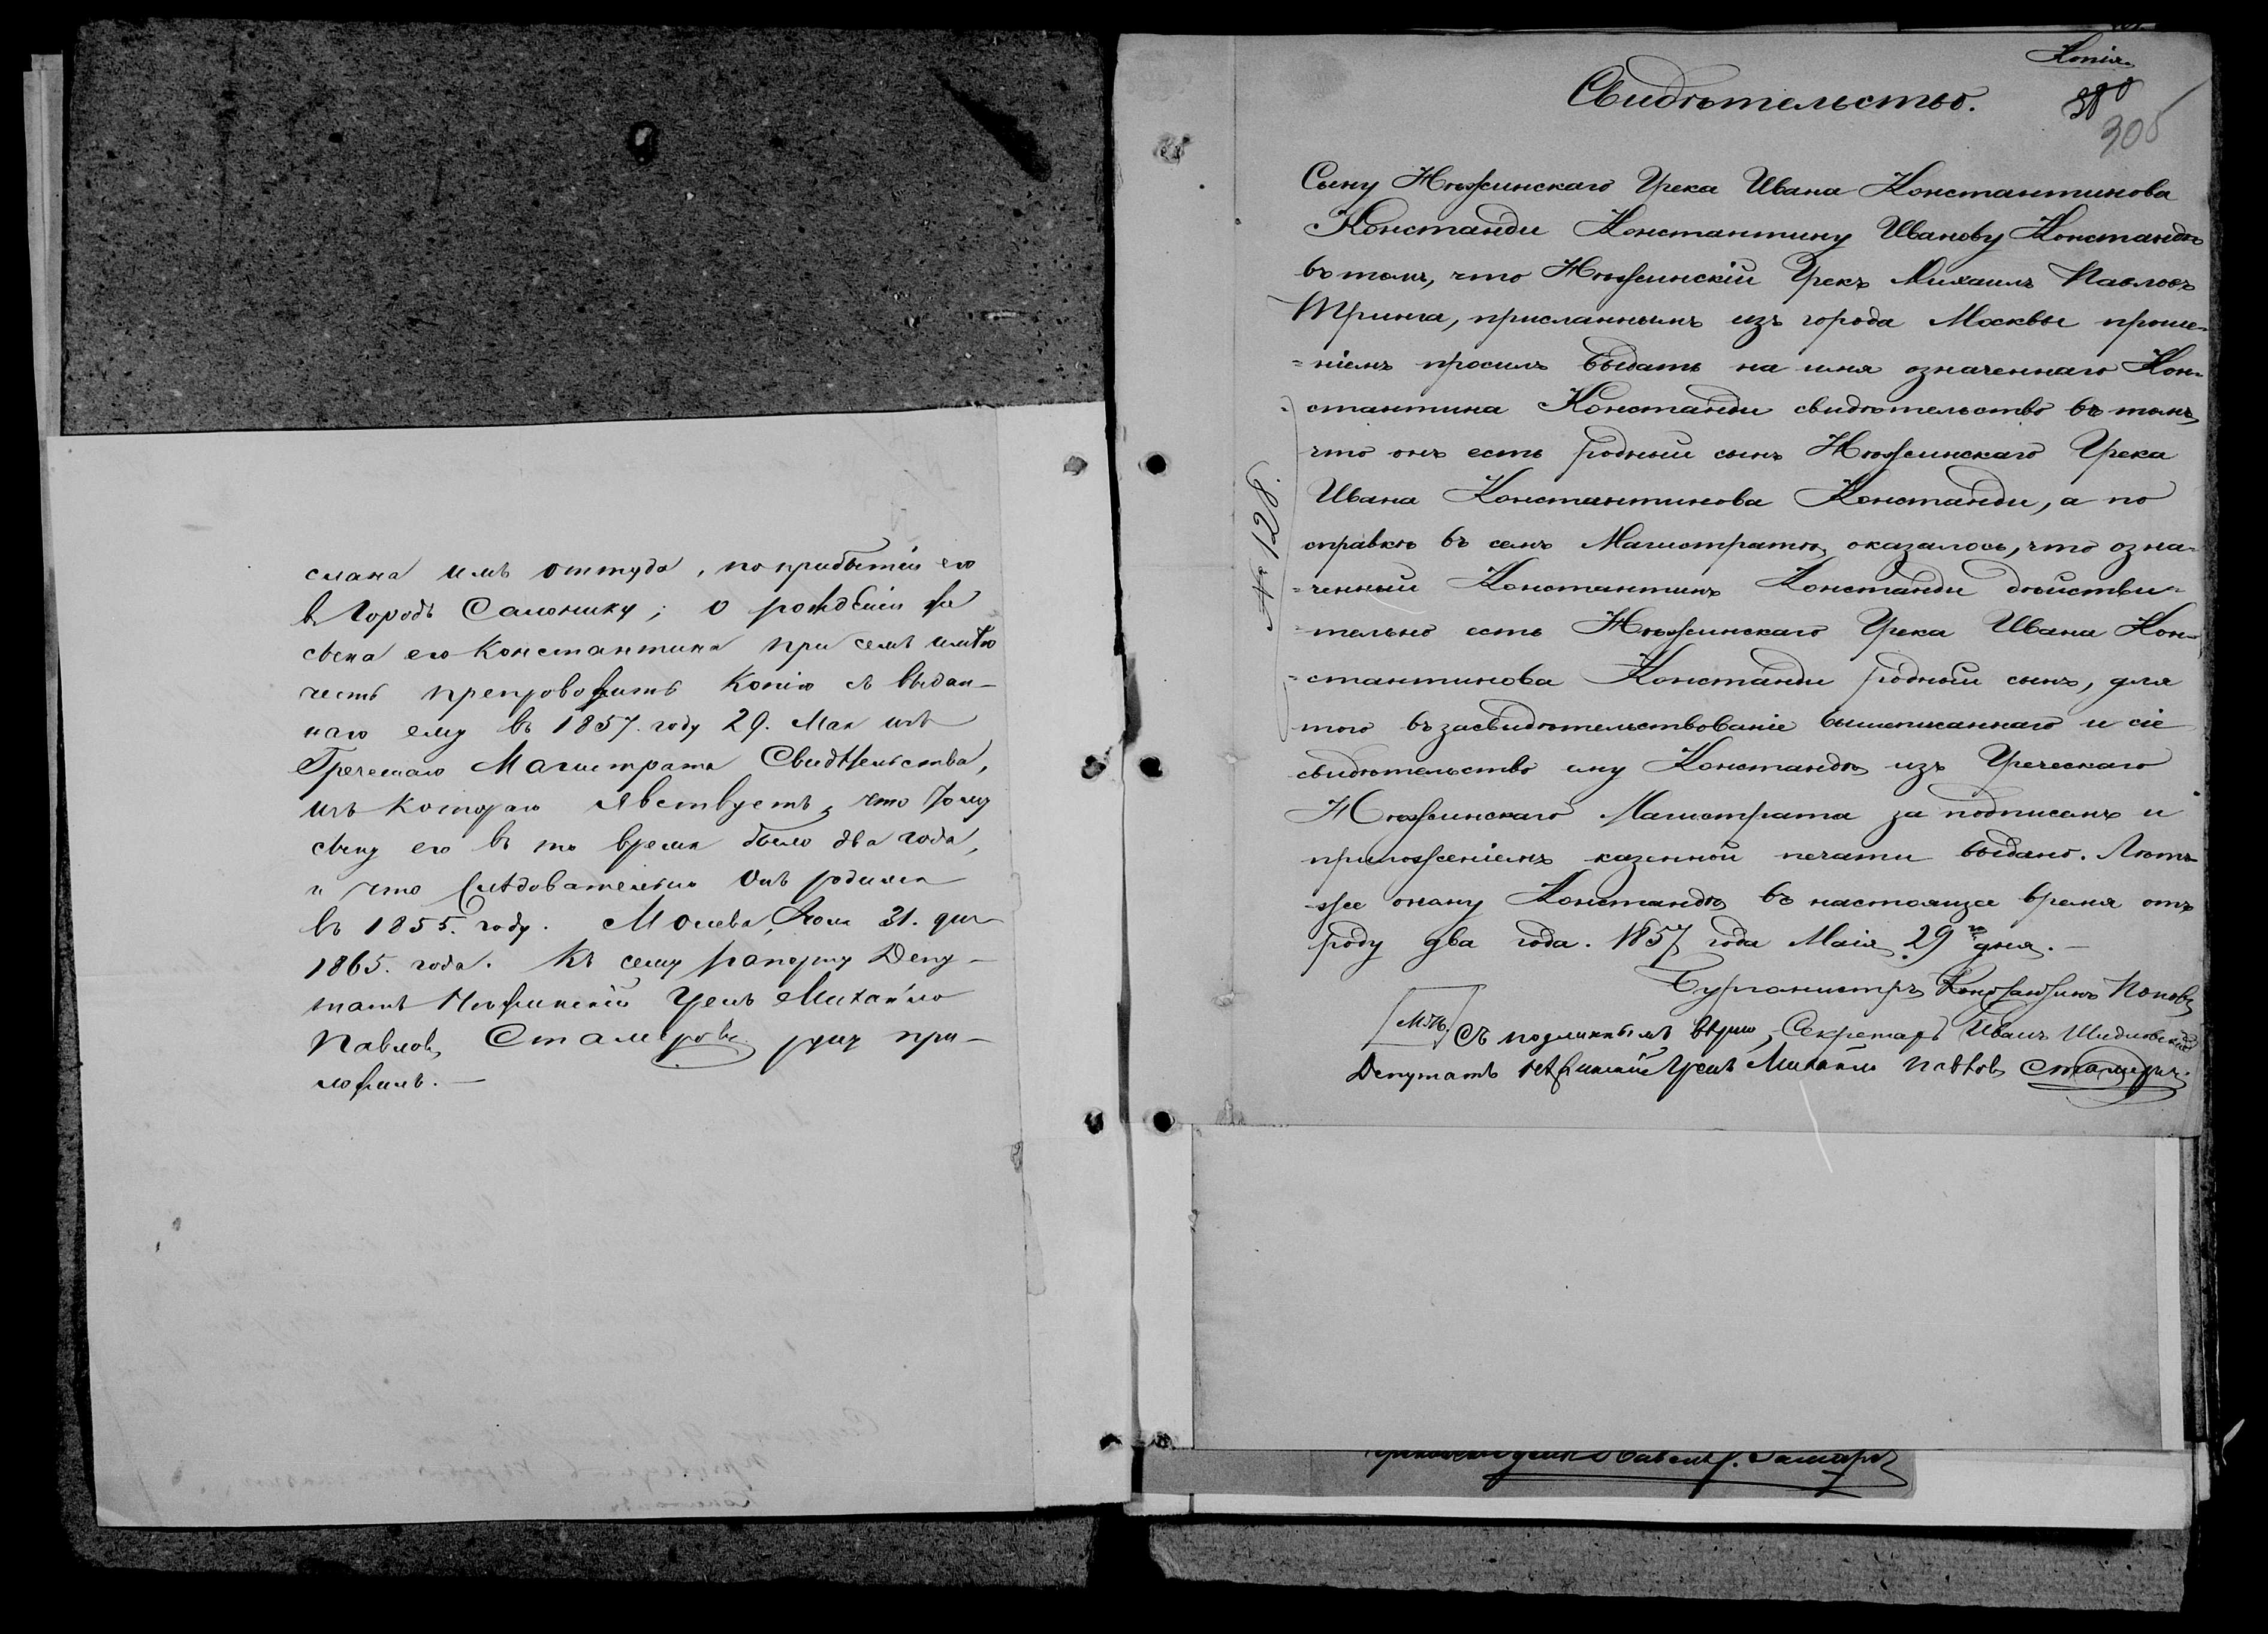 слана имъ оттуда, по прибытіи его
въ Городъ Салонику; о рожденіи же
сына его Константина при семъ имѣю
честь препроводить Копію съ выдан-
наго ему въ 1857. году 29. Мая изъ
Греческаго Магистрата Свидѣтельства,
изъ котораго явствуетъ, что тому
сыну его въ то время было два года,
и что слѣдовательно онъ родился
въ 1855. году. Москва, 31. дня
1865. года. Къ сему рапорту Депу-
татъ Нѣжинскій Грекъ Михайло
Павловъ руку при-
ложилъ.—
Копія
Свидѣтельство.
380
305
Сыну Нѣжинскаго Грека Ивана Константинова
Констанди Константину Иванову Констандѣ
въ томъ, что Нѣжинскій Грекъ Михаилъ Павловъ
Тринга, присланнымъ изъ города Москвы проше-
=ніемъ просилъ выдать на имя означеннаго Кон-
=стантина Констанди свидѣтельство въ томъ,
что онъ есть родный сынъ Нѣжинскаго Грека
Ивана Константинова Констанди, а по
справкѣ въ семъ Магистратѣ, оказалось, что озна-
=ченный Константинъ Констанди дѣйстви-
=тельно есть Нѣжинскаго Грека Ивана Кон-
=стантинова Констанди родный сынъ, для
того въ засвидѣтельствованіе вышеписаннаго и сіе
свидѣтельство ему Констандѣ изъ Греческаго
Нѣжинскаго Магистрата за подписемъ и
приложеніемъ казенной печати выдано. Лѣтъ
же оному Констандѣ въ настоящее время отъ
роду два года. 1857 года Маія 29 дня.—
№ 128.
Бургомистръ Константинъ Поповъ
М.П. Съ подлиннымъ вѣрно, Секретарь Иванъ
Депутатъ Нѣжинскій Грекъ Михайло Павловъ